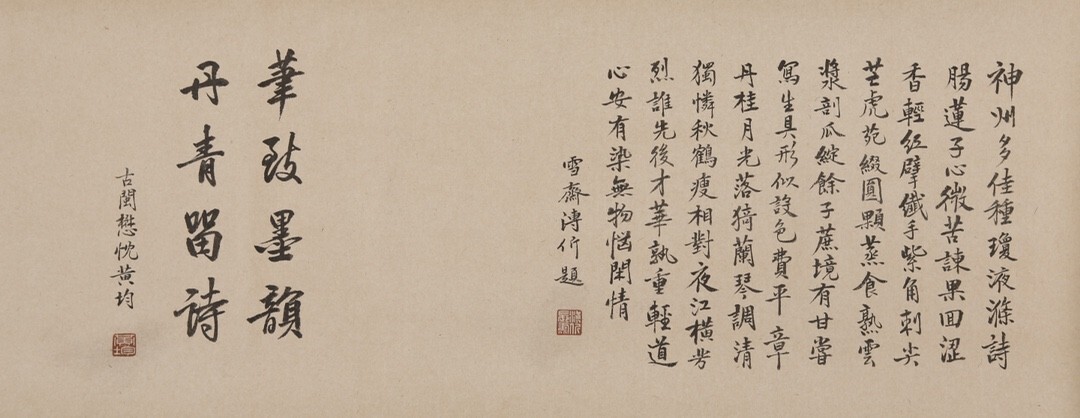 神州多佳種瓊液滌詩
腸蓮子心微苦諫果回澀
香輕紅擘纖手紫角刺尖
芒虎苑綴圓顆蒸食熟雲
漿剖瓜綻餘子蔗境有甘嘗
寫生具形似設色費平章
丹桂月光落猗蘭琴調清
獨憐秋鶴瘦相對夜江橫芳
烈誰先後才華孰重輕道
心安有染無物惱閑情
雪齋溥伒題
華致墨韻
丹青留詩
古閩懋忱黃均